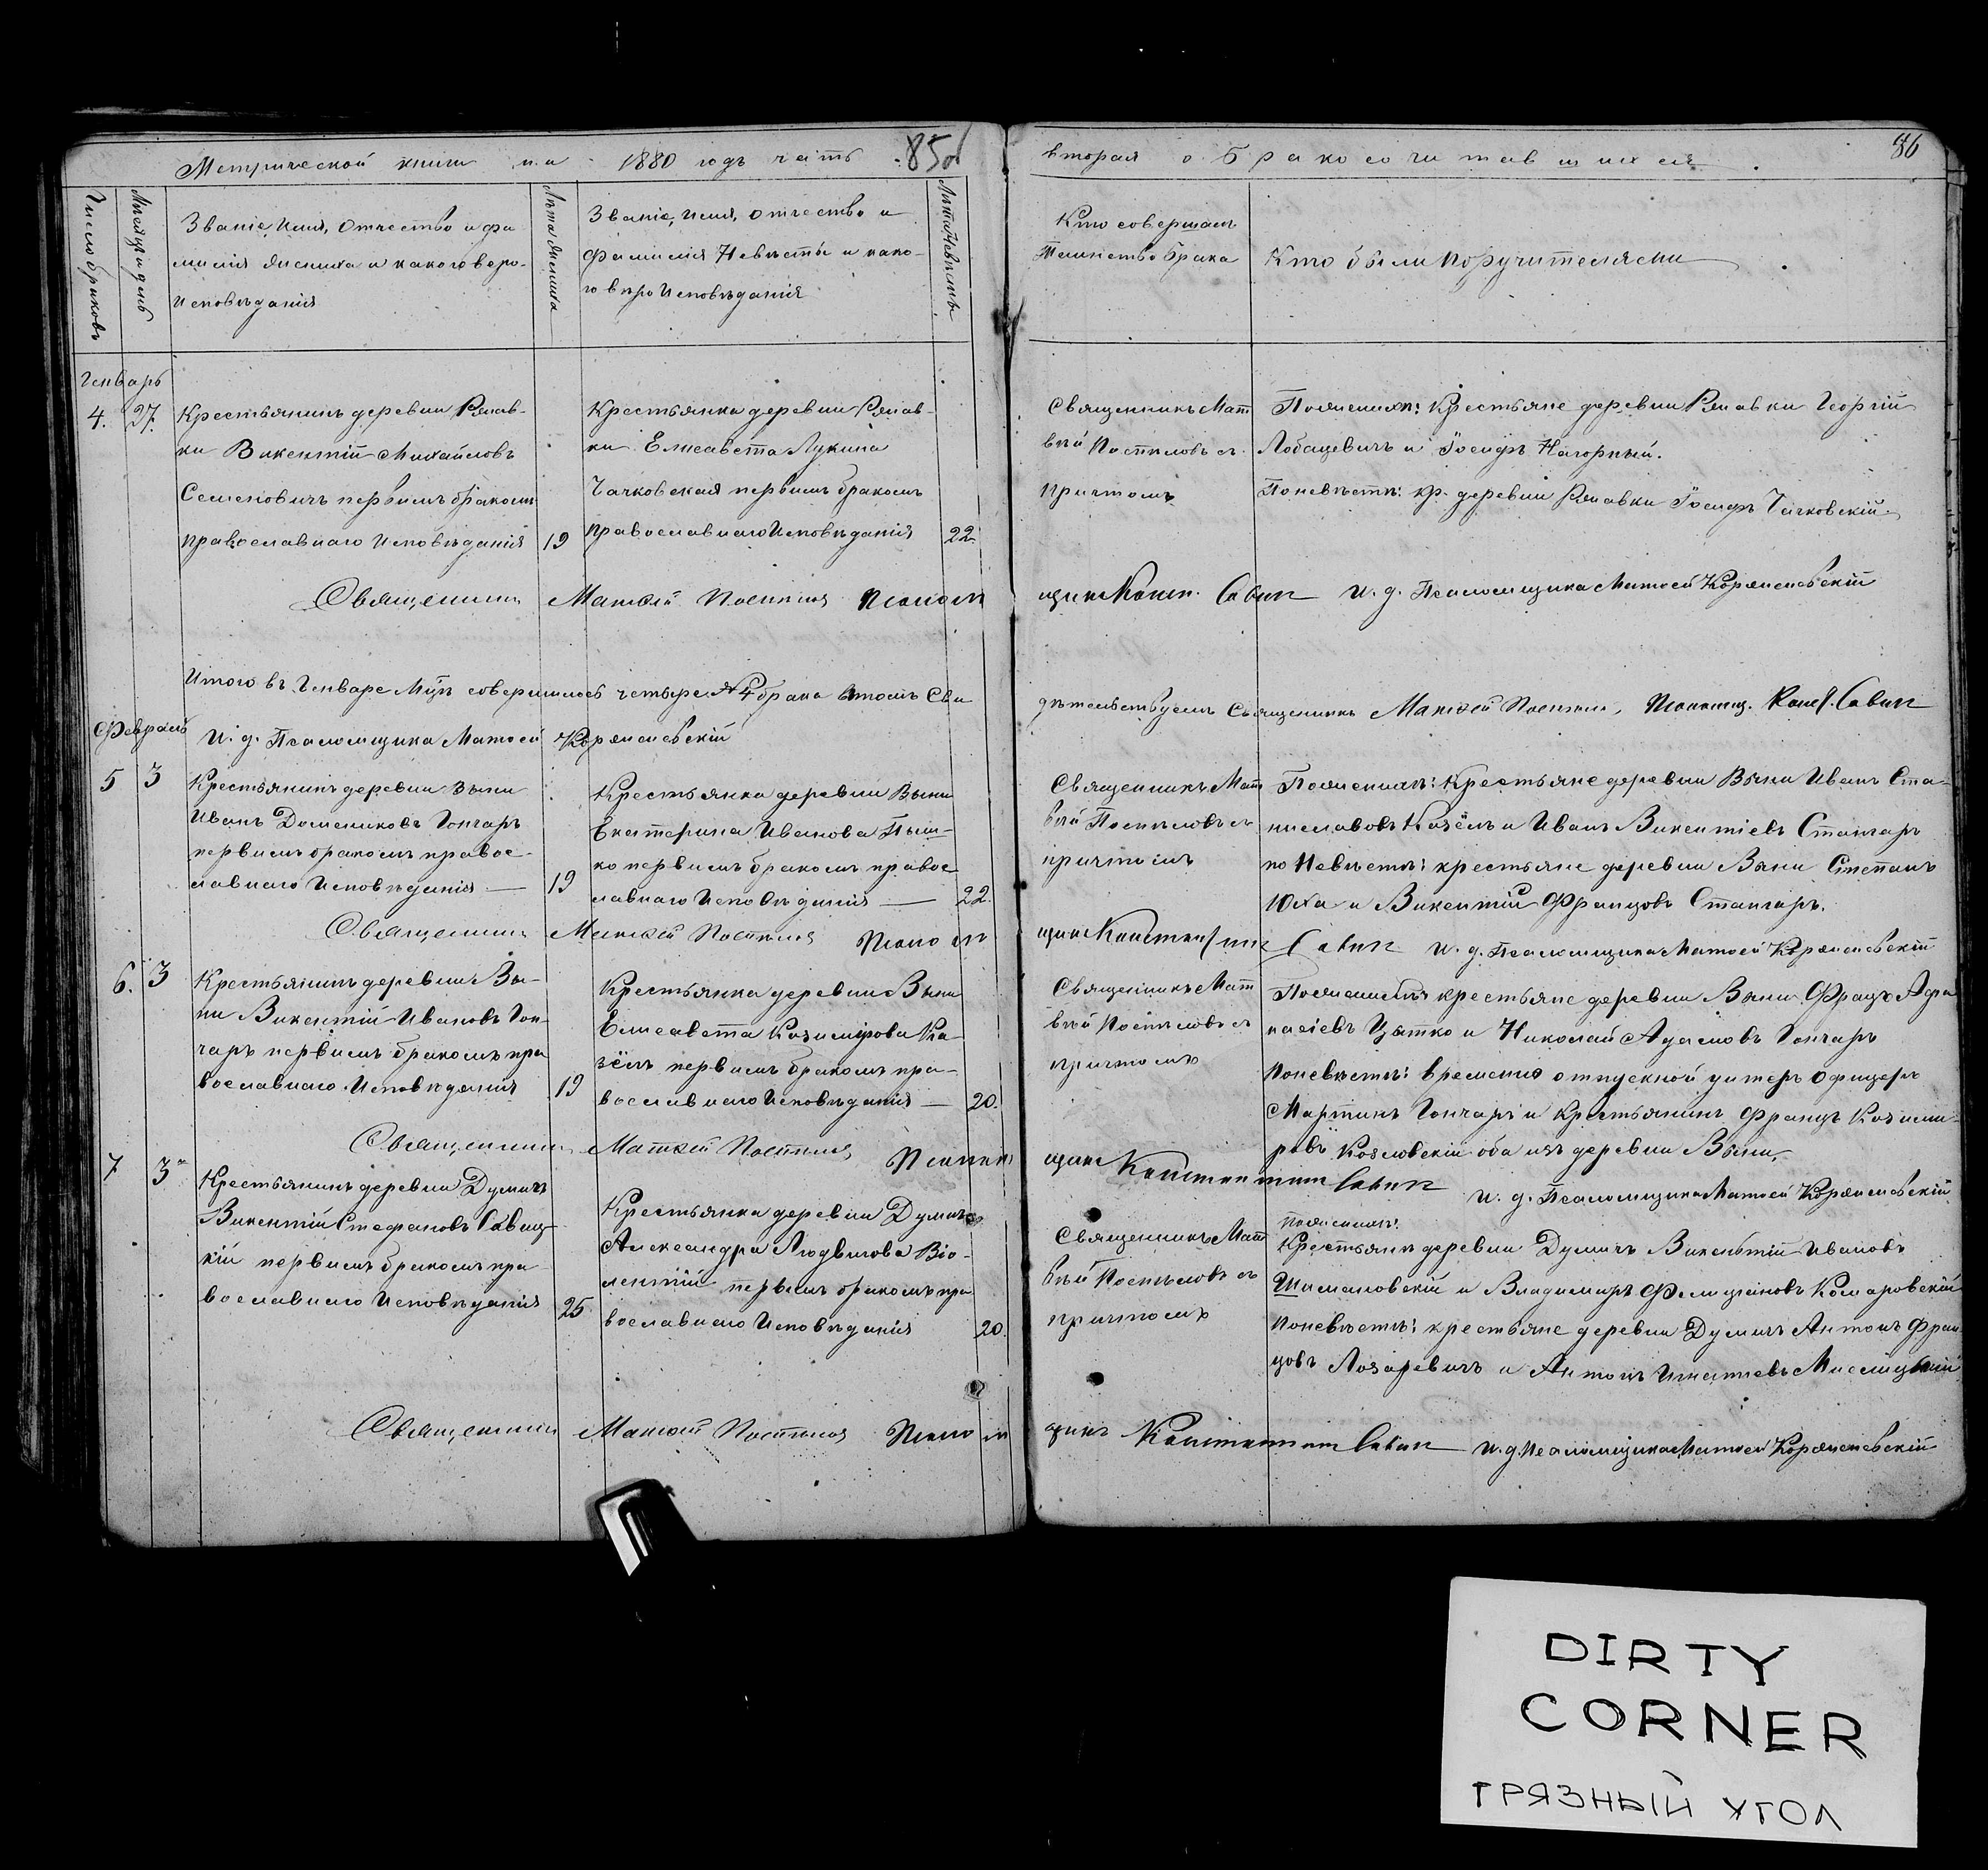 Метрической книги на 1880 годъ часть 85об
вторая о бракосочитавшихся 86
Число браковъ
Месяцъ и день
Званіе, имя, отчество и фа
милія жениха и какого веро-
исповѣданія
Лѣта жениха
Званіе, имя, отчество и
фамилія невѣсты и како-
го вѣроисповѣданія
Лѣта невѣсты
Кто совершалъ
таинство брака
Кто были поручителями
Генварь
4. 27.
Крестьянинъ деревни Рымав-
ки Викентій Михайловъ
Семеновичъ первымъ бракомъ
православнаго исповѣданія 19
Крестьянка деревни Рымав-
ки Елисавета Лукина
Чачковская первымъ бракомъ
православнаго исповѣданія 22.
Священникъ Мат
вѣй Постниловъ съ
причтомъ
По женихѣ: Крестьяне деревни Рымавки Георгій
Лобацевичъ и Іосифъ Нагорный.
По невѣстѣ: кр. деревни Рымавки Іосифъ Чачковскій.
Священникъ Матѳей Псаломщикъ Конст. Савич И. д. Псаломщика Матѳей Корженевскій
Итого въ Генваре М͠цѣ совершилось четыре № 4 брака въ томъ Сви
дѣтельствуемъ Священникъ Матѳей Псаломщ. Конст. Савич
Февраль
И. д. Псаломщика Матѳей Корженевскій
5 3
Крестьянинъ деревни Выни
Иванъ Домениковъ Гончаръ
первымъ бракомъ правос-
лавнаго исповѣданія — 19
Крестьянка деревни Выни
Екатерина Иванова Пыш-
ко первымъ бракомъ правос
лавнаго исповѣданія — 22.
Священникъ Мат
вѣй съ
причтомъ
По женихѣ: Крестьяне деревни Выни Иванъ Ста-
ниславовъ Козёлъ и Иванъ Викентіевъ Стангаръ
по невѣстѣ: крестьяне деревни Выни Степанъ
Юха и Викентій Францовъ Стангаръ.
Священникъ Матѳей Псаломщикъ Константин Савич и. д. Псаломщика Матѳей Корженевскій
6. 3
Крестьянинъ деревни Вы-
ни Викентій Ивановъ Гон-
чаръ первымъ бракомъ пра
вославнаго исповѣданія 19
Крестьянка деревни Выни
Елисавета Козимірова Ко-
зёлъ первымъ бракомъ пра-
вославнаго исповѣданія — 20.
Священникъ Мат
вѣй съ
причтомъ
По женихѣ крестьяне деревни Выни Францъ Афа
насіевъ Цытко и Николай Адамовъ Гончаръ
По невѣстѣ: временно отпускной унтеръ офицеръ
Мартинъ Гончаръ и Крестьянинъ Францъ Козими-
ровъ Козловскій оба изъ деревни Выни.
Священникъ Матѳей Псаломщикъ Константин Савич и. д. Псаломщика Матѳей Корженевскій
7 3
Крестьянинъ деревни Думичъ
Викентій Стефановъ Савиц-
кій первымъ бракомъ пра
вославнаго исповѣданія 25
Крестьянка деревни Думичъ
Александра Людвигова Віо-
лентій первымъ бракомъ пра
вославнаго исповѣданія 20.
Священникъ Мат
вѣй съ
причтомъ
По женихѣ:
Крестьяне деревни Думичъ Викентій Ивановъ
Шимановскій и Владимиръ Фелиціановъ Комаровскій
По невѣстѣ: крестьяне деревни Думичъ Антонъ Фран
цовъ Лазаревичъ и Антонъ Игнатіевъ Мислицкій
Священникъ Матѳей Псаломщикъ Константин Савич и. д. Псаломщика Матѳей Корженевскій
DIRTY
CORNER
ГРЯЗНЫЙ УГОЛ